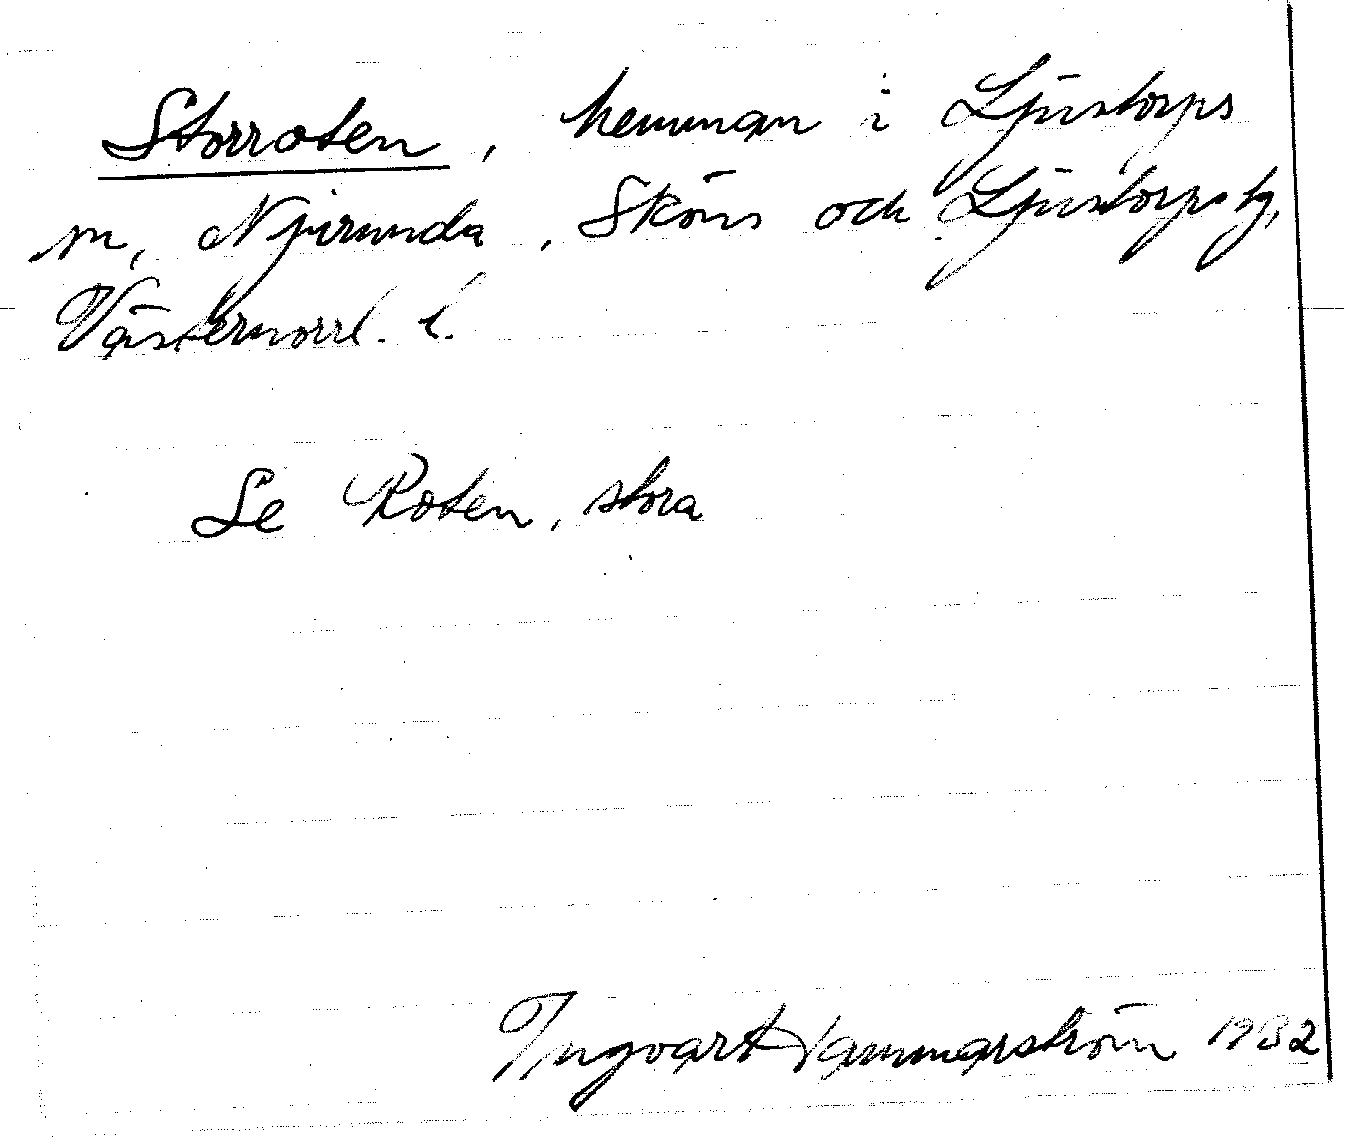 Storroten, hemman i Ljustorps
sn, Njurunda, Sköns och Ljustorps tg,
Västernorrl. l.
Se Roten, stora
Ingvart Hammarström 1932